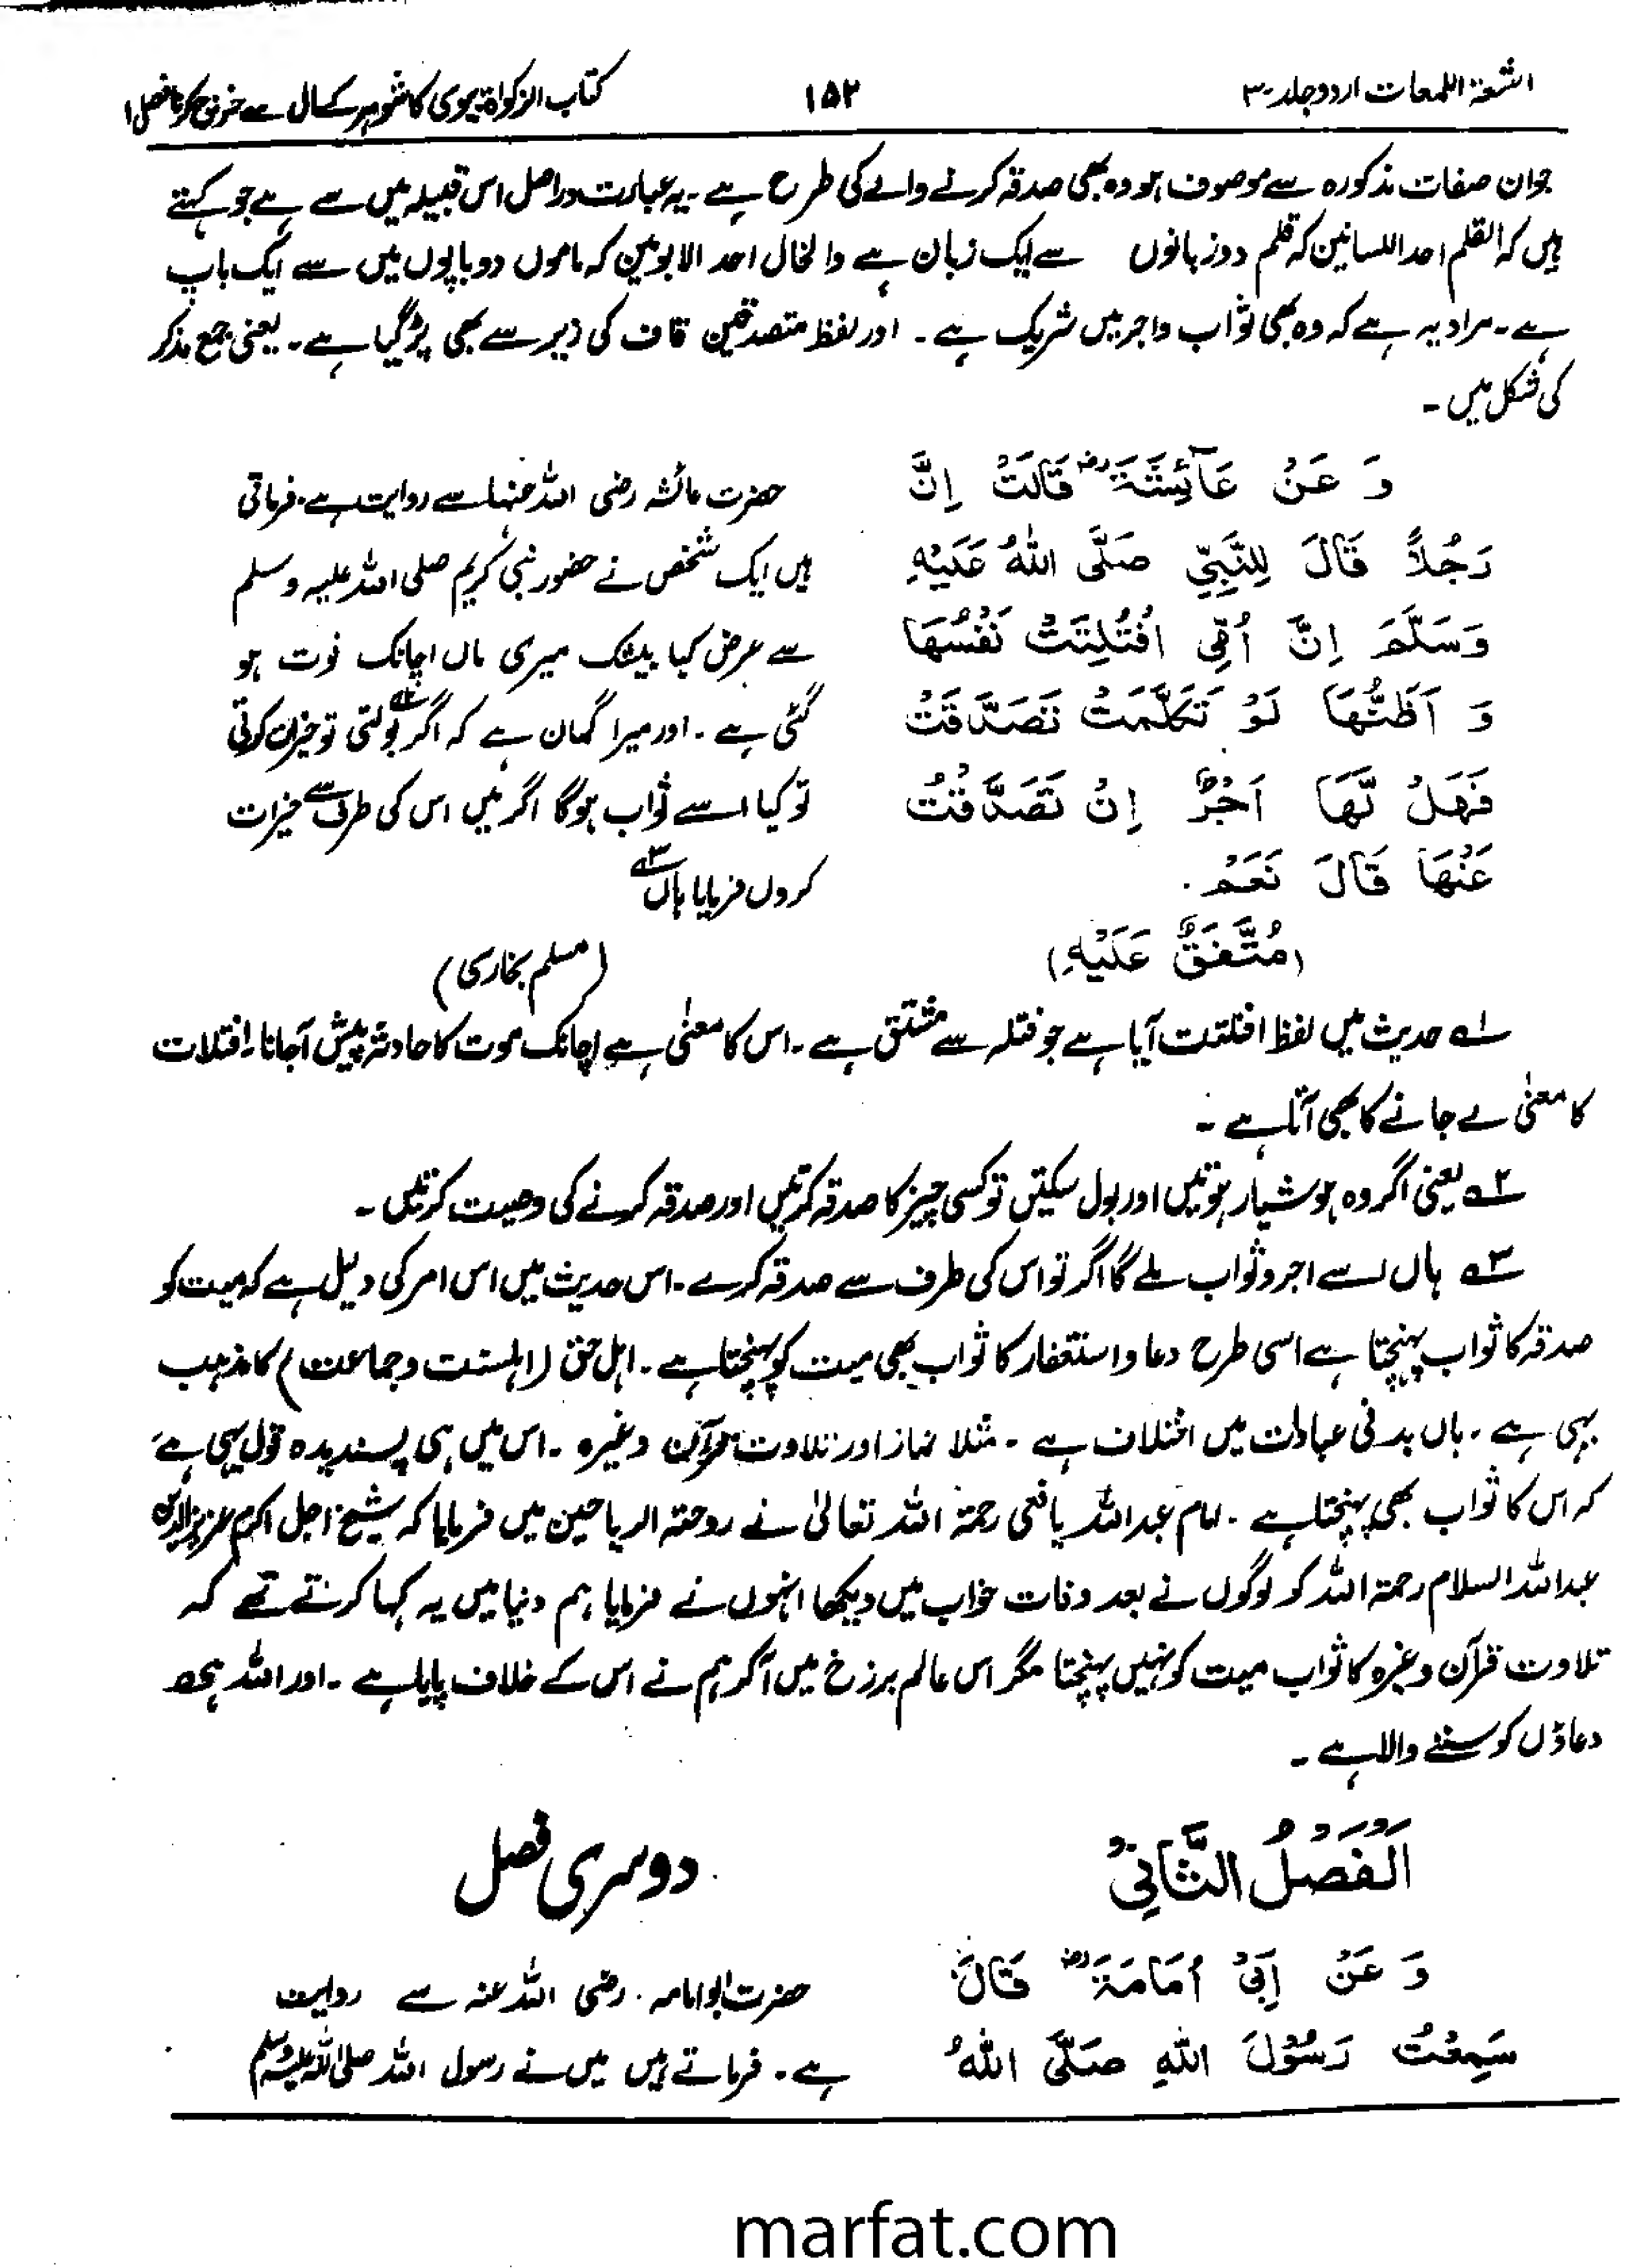 اشعۃ اللمعات اردو جلد ۳
۱۵۲
کتاب الزکواۃ بیوی کا شوہر کے مال سے خرچ کرنا فصل ۱
جو ان صفات مذکورہ سے موصوف ہو وہ بھی صدقہ کرنے والے کی طرح ہے ۔ یہ عبارت دراصل اس قبیلہ میں سے ہے جو کہتے
ہیں کہ القلم احد اللسانین کہ قلم دو زبانوں سے ایک زبان ہے والخال احد الابوین کہ ماموں دو باپوں میں سے ایک باپ
ہے ۔ مراد یہ ہے کہ وہ بھی ثواب واجر میں شریک ہے ۔ اور لفظ متصدقین قاف کی زیر سے بھی پڑگیا ہے ۔ یعنی جمع مذکر
کی شکل میں ۔
وَ عَنْ عَآئِشَةَ رض قَالَتْ اِنَّ
رَجُلاً قَالَ لِلنَّبِيِّ صَلَّى اللهُ عَلَيْهِ
وَسَلَّمَ اِنَّ اُمِّى افْتُلِتَتْ نَفْسُهَا
وَ اَظُنُّهَا لَوْ تَكَلَّمَتْ تَصَدَّقَتْ
فَهَلْ لَّهَا اَجْرٌ اِنْ تَصَدَّقْتُ
عَنْهَا قَالَ نَعَمْ .
(مُتَّفَقٌ عَلَيْهِ)
حضرت عائشہ رضی اللہ عنہا سے روایت ہے ۔ فرماتی
ہیں ایک شخص نے حضور نبی کریم صلی اللہ علیہ وسلم
سے عرض کیا بیشک میری ماں اچانک فوت ہو
گئی ہے ۔ اور میرا گمان ہے کہ اگر بولتی تو خیرات کرتی
تو کیا اسے ثواب ہوگا اگر میں اس کی طرف سے خیرات
کروں فرمایا ہاں ۳ے
(مسلم بخاری)
۱ے حدیث میں لفظ افتلتت آیا ہے جو فتلہ سے مشتق ہے ۔ اس کا معنیٰ ہے اچانک موت کا حادثہ پیش آجانا ۔ افتلات
کا معنیٰ لے جانے کا بھی آتا ہے ۔
۲ے یعنی اگر وہ ہوشیار ہوتیں اور بول سکتیں تو کسی چیز کا صدقہ کرتیں اور صدقہ کرنے کی وصیت کرتیں ۔
۳ے ہاں اسے اجر وثواب ملے گا اگر تو اس کی طرف سے صدقہ کرے ۔ اس حدیث میں اس امر کی دلیل ہے کہ میت کو
صدقہ کا ثواب پہنچتا ہے اسی طرح دعا واستغفار کا ثواب بھی میت کو پہنچتا ہے ۔ اہل حق (اہلسنت وجماعت) کا مذہب
یہی ہے ۔ ہاں بدنی عبادت میں اختلاف ہے ۔ مثلا نماز اور تلاوت قرآن وغیرہ ۔ اس میں ہی پسندیدہ قول یہی ہے
کہ اس کا ثواب بھی پہنچتا ہے ۔ امام عبداللہ یافعی رحمۃ اللہ تعالیٰ نے روحتہ الریاحین میں فرمایا کہ شیخ اجل اکرم عزیزالدین
عبداللہ السلام رحمۃ اللہ کو لوگوں نے بعد وفات خواب میں دیکھا انہوں نے فرمایا ہم دنیا میں یہ کہا کرتے تھے کہ
تلاوت قرآن وغیرہ کا ثواب میت کو نہیں پہنچتا مگر اس عالم برزخ میں آکر ہم نے اس کے خلاف پایا ہے ۔ اور اللہ ہی
دعاؤں کو سننے والا ہے ۔
اَلْفَصْلُ الثَّانِيْ
دوسری فصل
وَ عَنْ اَبِيْ اُمَامَةَ رض قَالَ
سَمِعْتُ رَسُوْلَ اللهِ صَلَّى اللهُ
حضرت ابوامامہ رضی اللہ عنہ سے روایت
ہے ۔ فرماتے ہیں میں نے رسول اللہ صلی اللہ علیہ وسلم
marfat.com